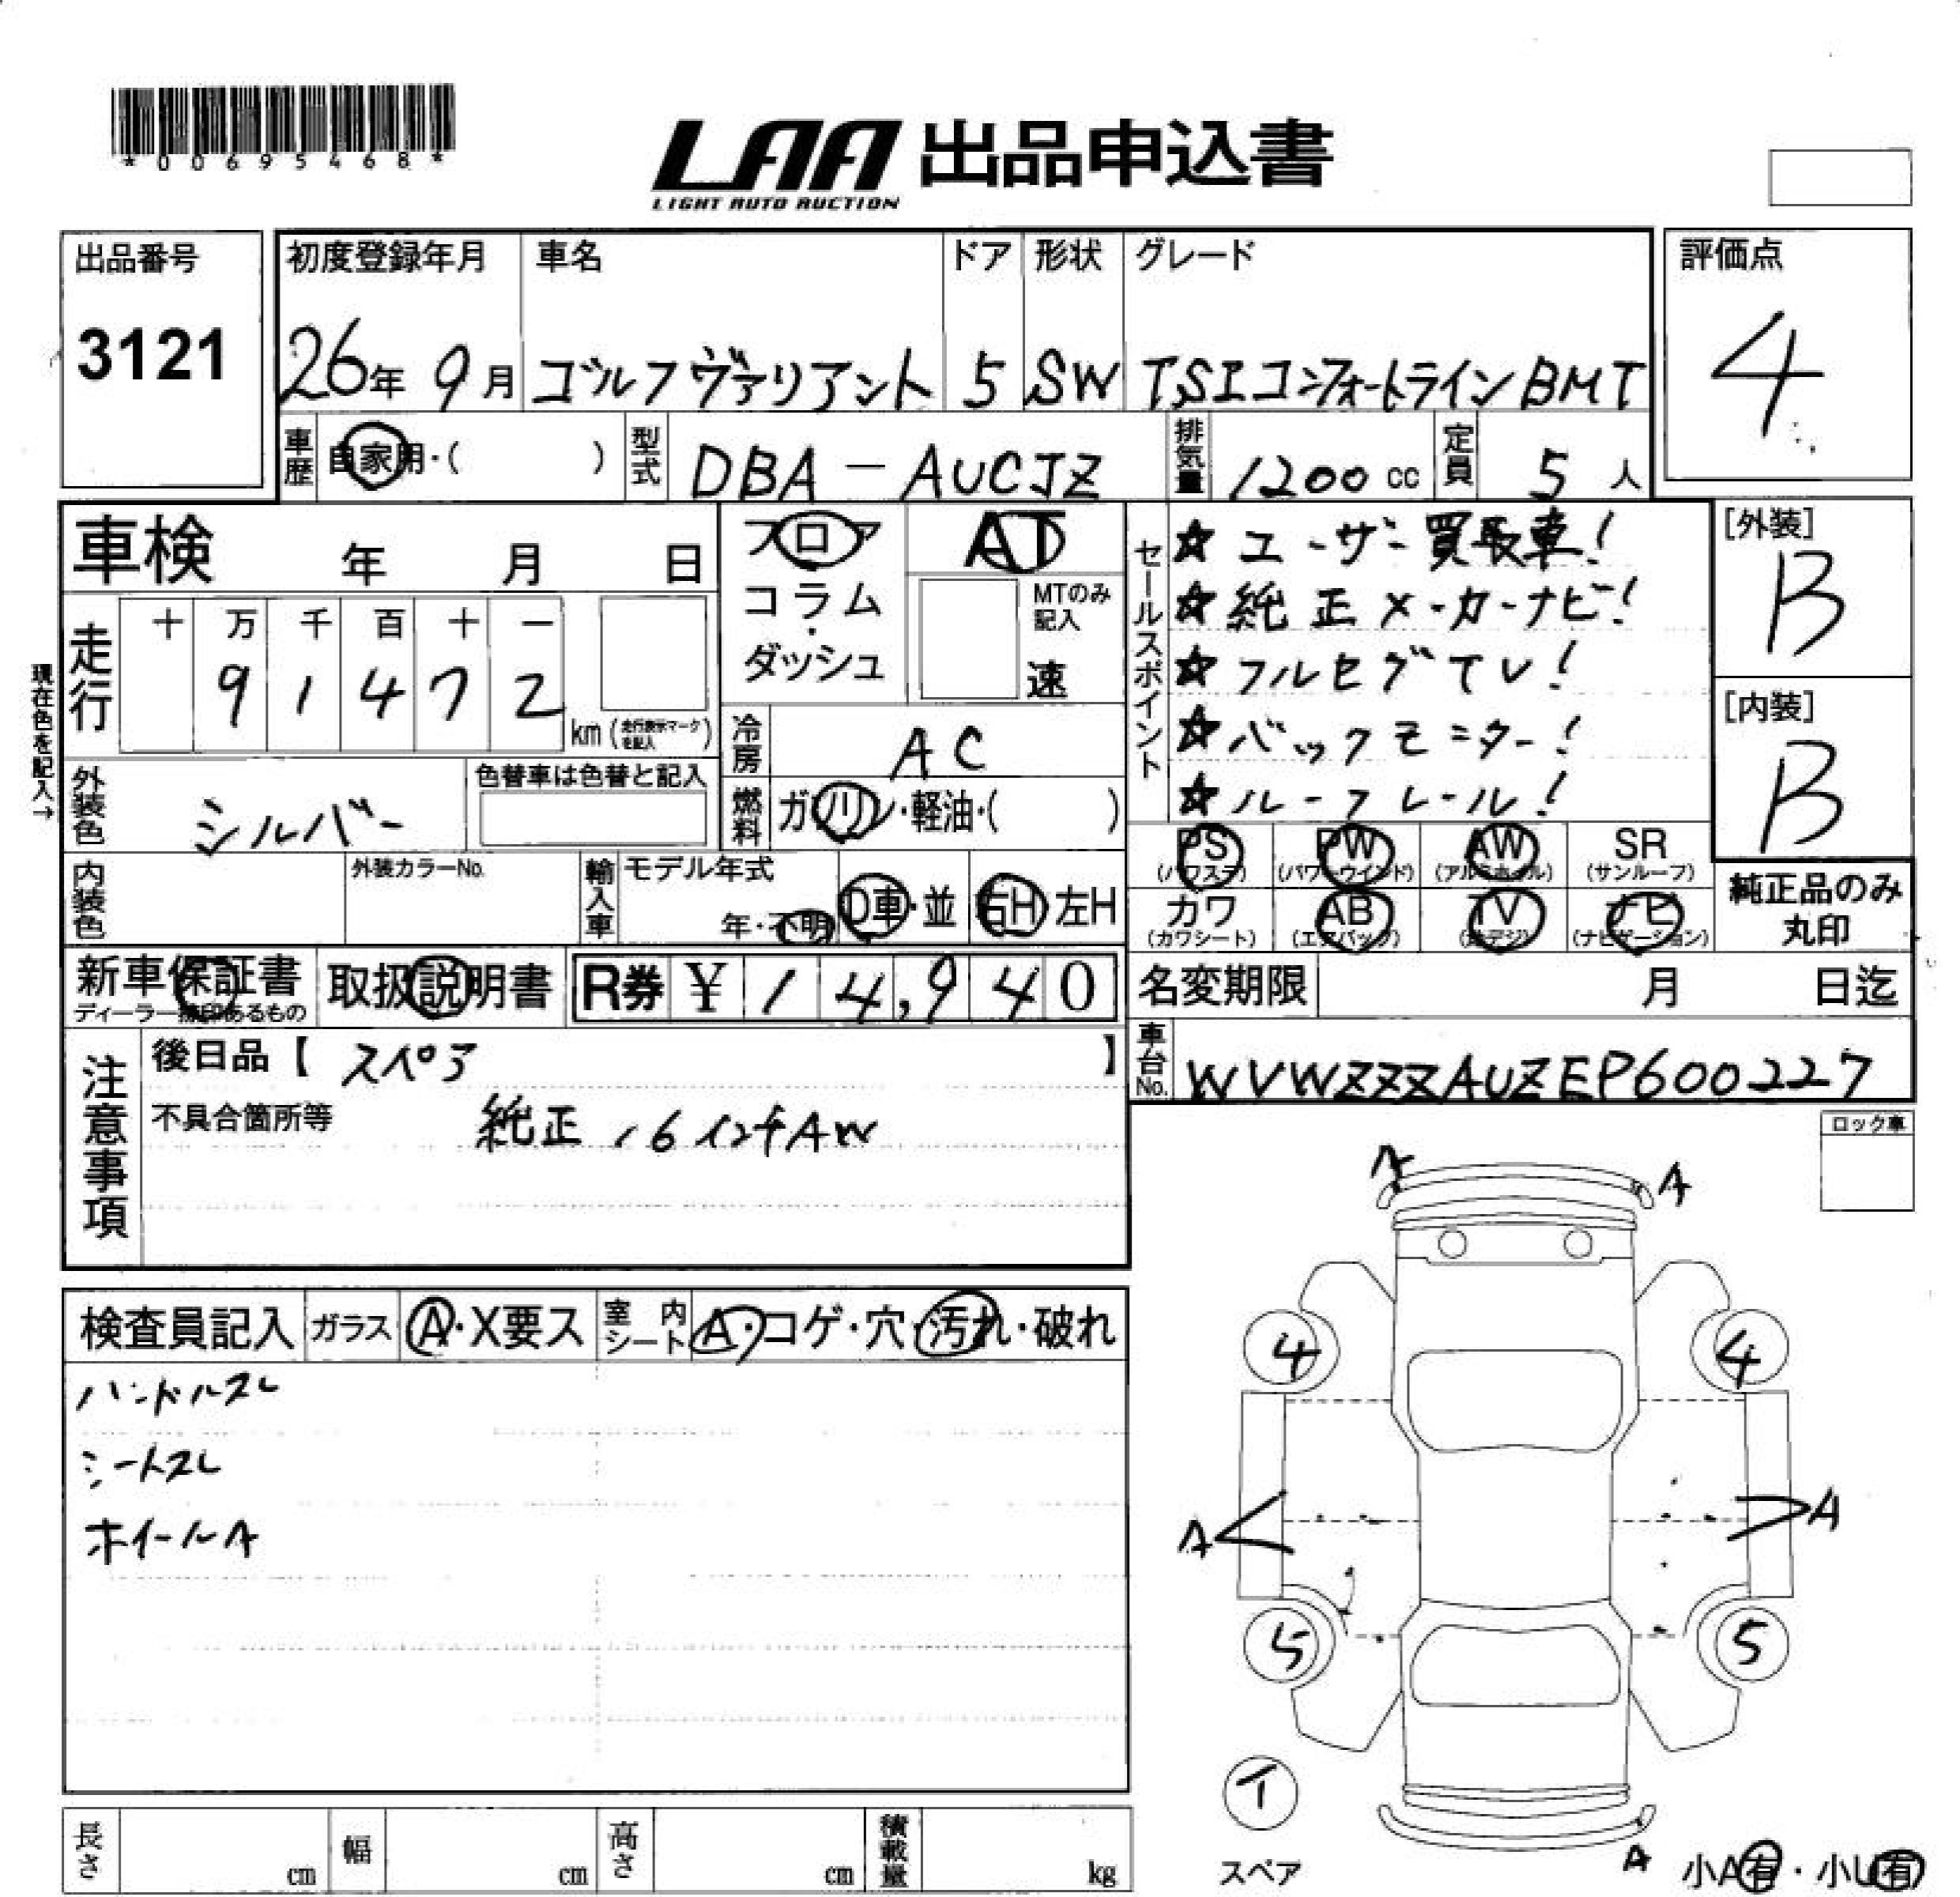 *00695468*
LAA 出品申込書
LIGHT AUTO AUCTION
出品番号
3121
初度登録年月 車名 ドア 形状 グレード
26年 9月 ゴルフヴァリアント 5 SW TSIコンフォートラインBMT
評価点
4
車歴 自家用・( ) 型式 DBA-AUCJZ 排気量 1200cc 定員 5人
車検 年 月 日
フロア・コラム・ダッシュ
AT
MTのみ記入
速
現在色を記入→
走行 十 万 千 百 十 一
9 1 4 7 2 km (走行表示マークを記入)
冷房 AC
燃料 ガソリン・軽油・( )
外装色 シルバー 色替車は色替と記入
内装色 外装カラーNo. 輸入車 モデル年式 年・不明 D車・並 右H 左H
セールスポイント
☆ユーザー買取車!
☆純正メーカーナビ!
☆フルセグTV!
☆バックモニター!
☆ルーフレール!
[外装]
B
[内装]
B
PS AW PW SR
(パワステ) (パワーウインド) (アルミホイル) (サンルーフ)
カワ AB TV ナビ
(カワシート) (エアバック) (地デジ) (ナビゲーション)
純正品のみ丸印
新車保証書 取扱説明書 R券 ¥14,940
ディーラー捺印あるもの
名変期限 月 日迄
車台No. WVWZZZAUZEP600227
注意事項
後日品【スペア】
不具合箇所等 純正16インチAW
ロック車
検査員記入 ガラス A・X要ス 室内シート A・コゲ・穴・汚れ・破れ
ハンドルスレ
シートスレ
ホイールA
A A
4 4
A A
5 5
T
スペア
A
小A有・小U有
長さ cm 幅 cm 高さ cm 積載量 kg